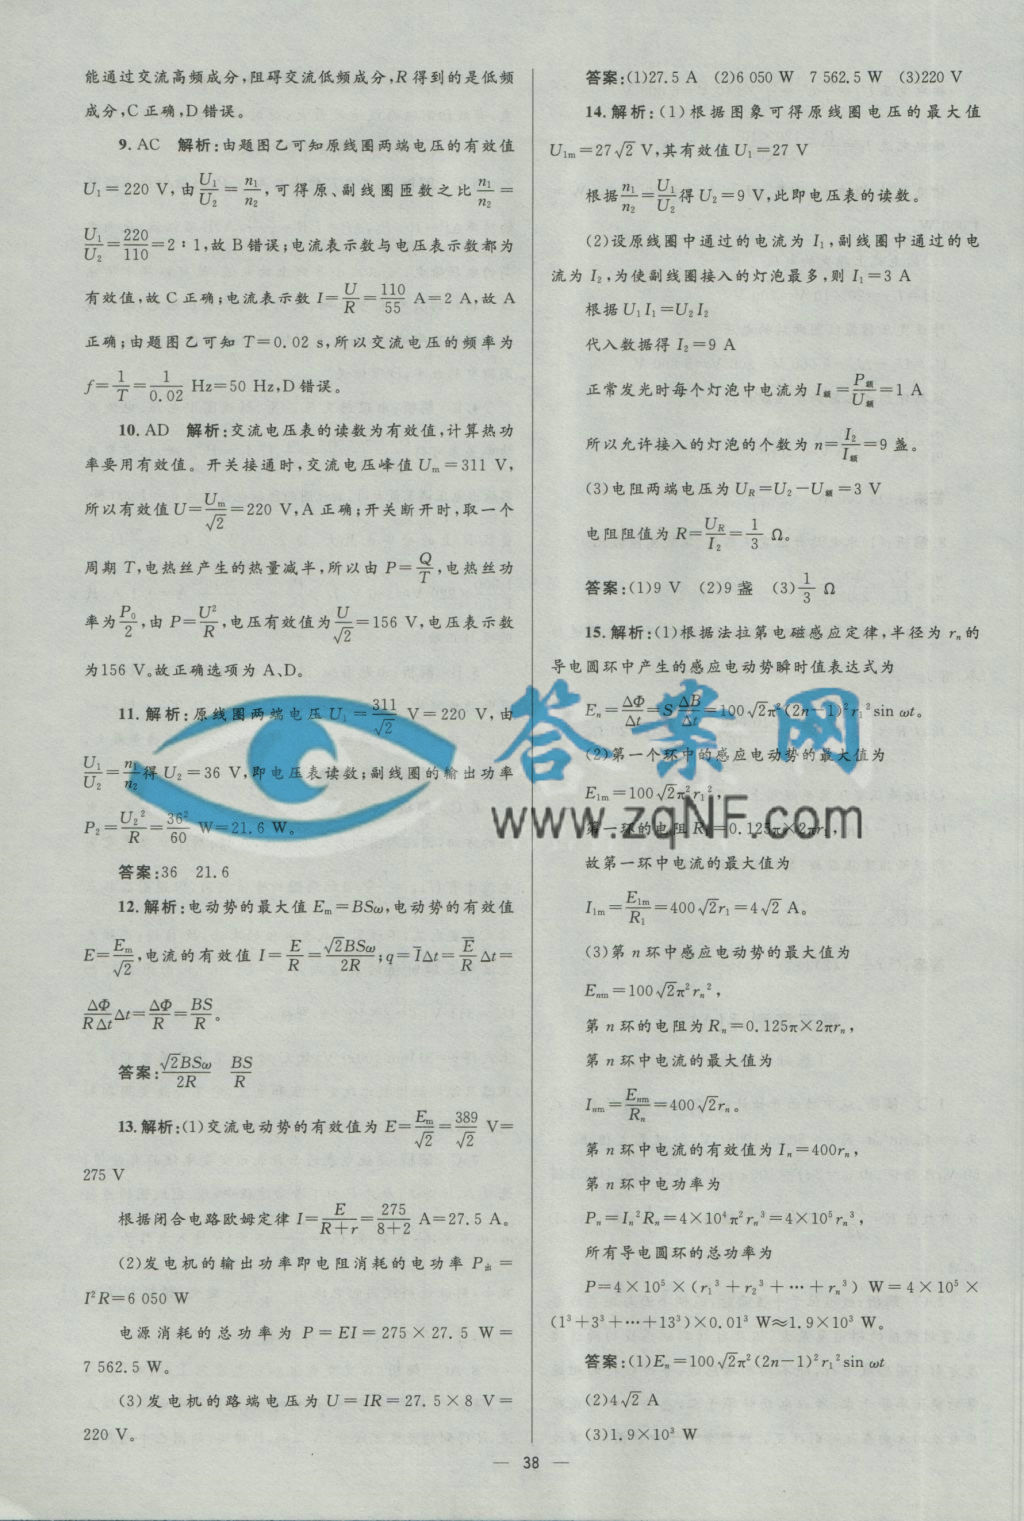 能通过交流高频成分,阻碍交流低频成分,R得到的是低频
成分,C正确,D错误。
9. AC 解析:由题图乙可知原线圈两端电压的有效值
U₁=220 V,由U₁/U₂=n₁/n₂,可得原、副线圈匝数之比n₁/n₂=
U₁/U₂=220/110=2∶1,故B错误;电流表示数与电压表示数都为
有效值,故C正确;电流表示数I=U/R=110/55 A=2 A,故A
正确;由题图乙可知T=0.02 s,所以交流电压的频率为
f=1/T=1/0.02 Hz=50 Hz,D错误。
10. AD 解析:交流电压表的读数为有效值,计算热功
率要用有效值。开关接通时,交流电压峰值Uₘ=311 V,
所以有效值U=Uₘ/√2=220 V,A正确;开关断开时,取一个
周期T,电热丝产生的热量减半,所以由P=Q/T,电热丝功
率为P₀/2,由P=U²/R,电压有效值为U/√2=156 V,电压表示数
为156 V。故正确选项为A、D。
11. 解析:原线圈两端电压U₁=311/√2 V=220 V,由
U₁/U₂=n₁/n₂得U₂=36 V,即电压表读数;副线圈的输出功率
P₂=U₂²/R=36²/60 W=21.6 W。
答案:36 21.6
12. 解析:电动势的最大值Eₘ=BSω,电动势的有效值
E=Eₘ/√2,电流的有效值I=E/R=√2BSω/2R;q=I̅Δt=E̅/RΔt=
ΔΦ/RΔtΔt=ΔΦ/R=BS/R。
答案:√2BSω/2R BS/R
13. 解析:(1)交流电动势的有效值为E=Eₘ/√2=389/√2 V=
275 V
根据闭合电路欧姆定律I=E/R+r=275/8+2 A=27.5 A。
(2)发电机的输出功率即电阻消耗的电功率P出=
I²R=6 050 W
电源消耗的总功率为P=EI=275×27.5 W=
7 562.5 W。
(3)发电机的路端电压为U=IR=27.5×8 V=
220 V。
答案:(1)27.5 A (2)6 050 W 7 562.5 W (3)220 V
14. 解析:(1)根据图象可得原线圈电压的最大值
U₁ₘ=27√2 V,其有效值U₁=27 V
根据n₁/n₂=U₁/U₂得U₂=9 V,此即电压表的读数。
(2)设原线圈中通过的电流为I₁,副线圈中通过的电
流为I₂,为使副线圈接入的灯泡最多,则I₁=3 A
根据U₁I₁=U₂I₂
代入数据得I₂=9 A
正常发光时每个灯泡中电流为I额=P额/U额=1 A
所以允许接入的灯泡的个数为n=I₂/I额=9盏。
(3)电阻两端电压为U_R=U₂-U额=3 V
电阻阻值为R=U_R/I₂=1/3 Ω。
答案:(1)9 V (2)9盏 (3)1/3 Ω
15. 解析:(1)根据法拉第电磁感应定律,半径为rₙ的
导电圆环中产生的感应电动势瞬时值表达式为
Eₙ=ΔΦ/Δt=SΔB/Δt=100√2π²(2n-1)²r₁²sin ωt。
(2)第一个环中的感应电动势的最大值为
E₁ₘ=100√2π²r₁²,
第一环的电阻R₁=0.125π×2πr₁,
故第一环中电流的最大值为
I₁ₘ=E₁ₘ/R₁=400√2r₁=4√2 A。
(3)第n环中感应电动势的最大值为
Eₙₘ=100√2π²rₙ²,
第n环的电阻为Rₙ=0.125π×2πrₙ,
第n环中电流的最大值为
Iₙₘ=Eₙₘ/Rₙ=400√2rₙ。
第n环中电流的有效值为Iₙ=400rₙ,
第n环中电功率为
Pₙ=Iₙ²Rₙ=4×10⁴π²rₙ³=4×10⁵rₙ³,
所有导电圆环的总功率为
P=4×10⁵×(r₁³+r₂³+…+rₙ³) W=4×10⁵×
(1³+3³+…+13³)×0.01³ W≈1.9×10³ W。
答案:(1)Eₙ=100√2π²(2n-1)²r₁²sin ωt
(2)4√2 A
(3)1.9×10³ W
— 38 —
答案网
www.zqNF.com